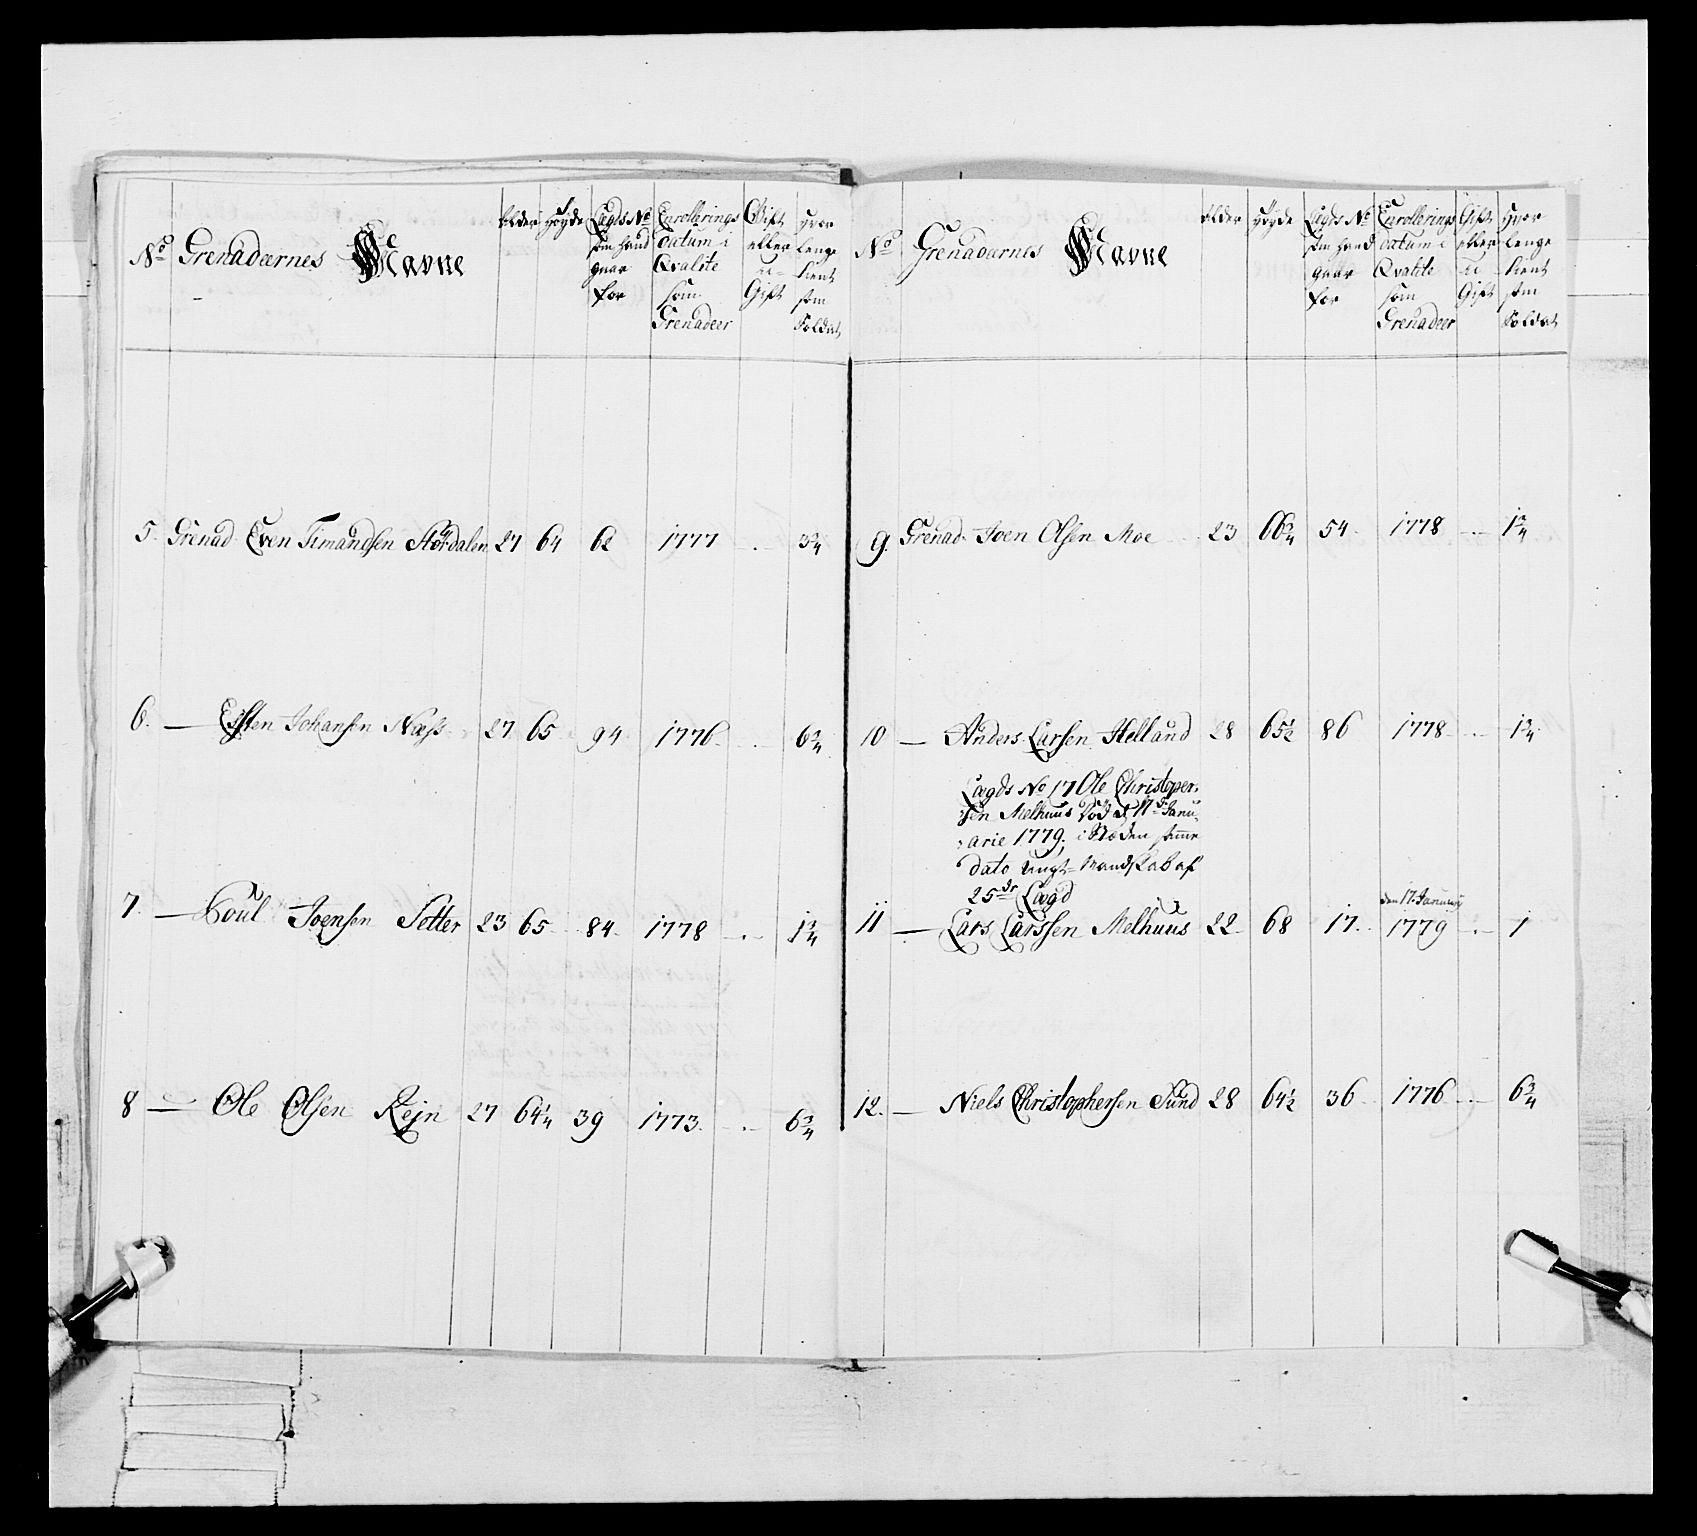 No Grenadeernes Navne
Alder
Høyde
Lægds No
som hand
gaar
for
Enrollerings
datum i
Qvalite
som
Grenadeer
Gift
eller
u-
Gift
hvor
lenge
tient
som
Soldat
5. Grenad Even Simandsen Størdalen 27 64 62 1777 - 3 3/4
6. — Esten Johansen Næss 27 65 94 1776 - 6 3/4
7. — Poul Joensen Setter 23 65 84 1778 - 1 3/4
8 — Ole Olsen Rejn 27 64 1/4 39 1773 - 6 3/4
No Grenadeernes Navne
Alder
Høyde
Lægds No
som hand
gaar
for
Enrollerings
datum i
Qvalite
som
Grenadeer
Gift
eller
u-
Gift
hvor
lenge
tient
som
Soldat
9. Grenad. Joen Olsen Moe 23 66 3/4 54 1778 - 1 3/4
10 — Anders Larsen Helland 28 65 1/2 86 1778 - 1 3/4
Lægds No 17 Ole Christoper-
sen Melhuus død d 17de Janu-
arie 1779, i Stæden samme
dato Ungt Mandskab af
25de Lægd
den 17 Januarij
11 — Lars Larssen Melhuus 22 68 17 1779 - 1
12. — Niels Christophersen Sund 28 64 1/2 36 1776 - 6 3/4